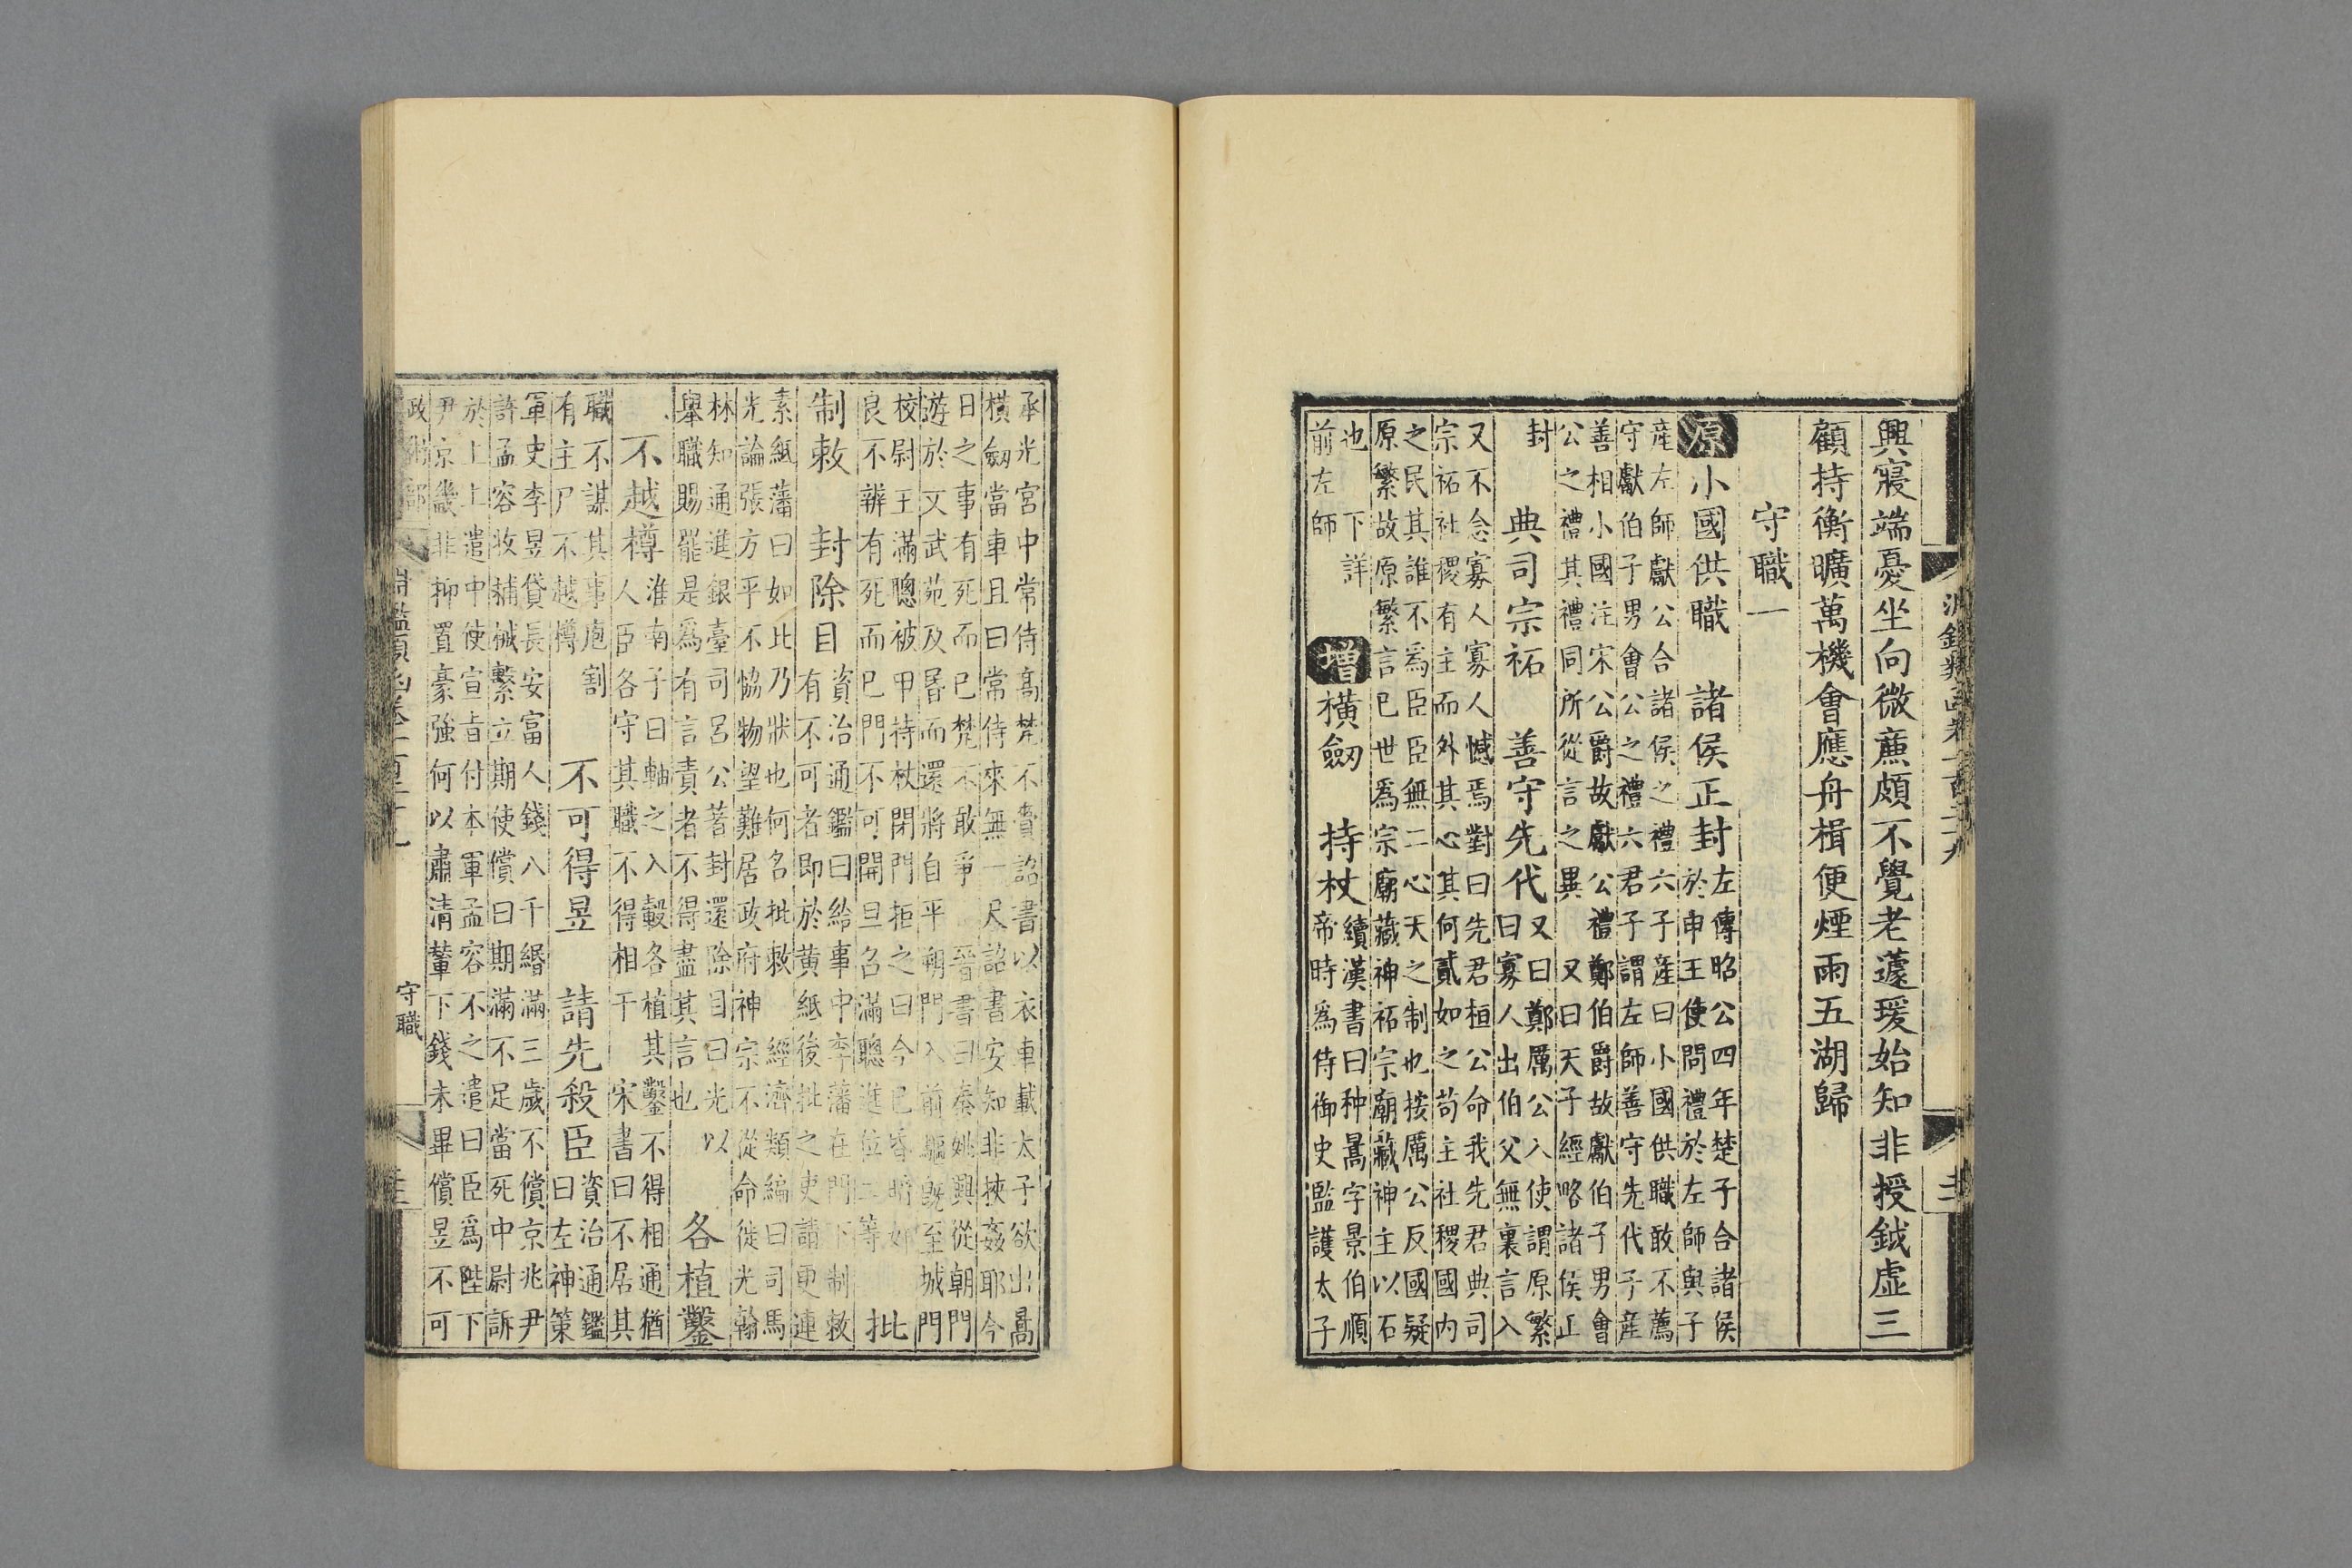 淵鑑類函卷一百三十九 十二
興寢端憂坐向微蔗頗不覺老蘧瑗始知非授鉞虛三
顧持衡曠萬機會應舟楫便煙雨五湖歸
守職一
原小國供職 諸侯正封
左傳昭公四年楚子合諸侯
於申王使問禮於左師與子
産左師獻公合諸侯之禮六子産曰小國供職敢不薦
守獻伯子男會公之禮六君子謂左師善守先代子産
善相小國注宋公爵故獻公禮鄭伯爵故獻伯子男會
公之禮其禮同所從言之異 又曰天子經略諸侯正
封
典司宗祏 善守先代
又曰鄭厲公入使謂原繁
曰寡人出伯父無裏言入
又不念寡人寡人憾焉對曰先君桓公命我先君典司
宗祏社稷有主而外其心其何貳如之苟主社稷國内
之民其誰不爲臣臣無二心天之制也按厲公反國疑
原繁故原繁言已世爲宗廟藏神祏宗廟藏神主以石
也 下詳
前左師
增橫劒 持杖
續漢書曰种暠字景伯順
帝時爲侍御史監護太子
承光宮中常侍高梵不賫詔書以衣車載太子欲出暠
橫劒當車且曰常侍來無一尺詔書安知非挾姦耶今
日之事有死而已梵不敢爭 晉書曰秦姚興從朝門
遊於文武苑及昬而還將自平朔門入前驅既至城門
校尉王滿聰被甲持杖閉門拒之曰今已昏暗奸
良不辨有死而已門不可開旦召滿聰進位二等
批
制敕 封除目
資治通鑑曰給事中李藩在門下制敕
有不可者即於黄紙後批之吏請更連
素紙藩曰如此乃狀也何名批敕 經濟類編曰司馬
光論張方平不恊物望難居政府神宗不從命徙光翰
林知通進銀臺司呂公著封還除目曰光以
舉職賜罷是爲有言責者不得盡其言也
各植鑿
不越樽
淮南子曰軸之入轂各植其鑿不得相通猶
人臣各守其職不得相干 宋書曰不居其
職不謀其事庖割
有主尸不越樽
不可得昱 請先殺臣
資治通鑑
曰左神策
軍史李昱貸長安富人錢八千緡滿三歲不償京兆尹
許孟容收捕械繫立期使償曰期滿不足當死中尉訴
於上上遣中使宣旨付本軍孟容不之遣曰臣爲陛下
尹京畿非抑置豪強何以肅清輦下錢未畢償昱不可
政術部 淵鑑類函卷一百三十九 守職